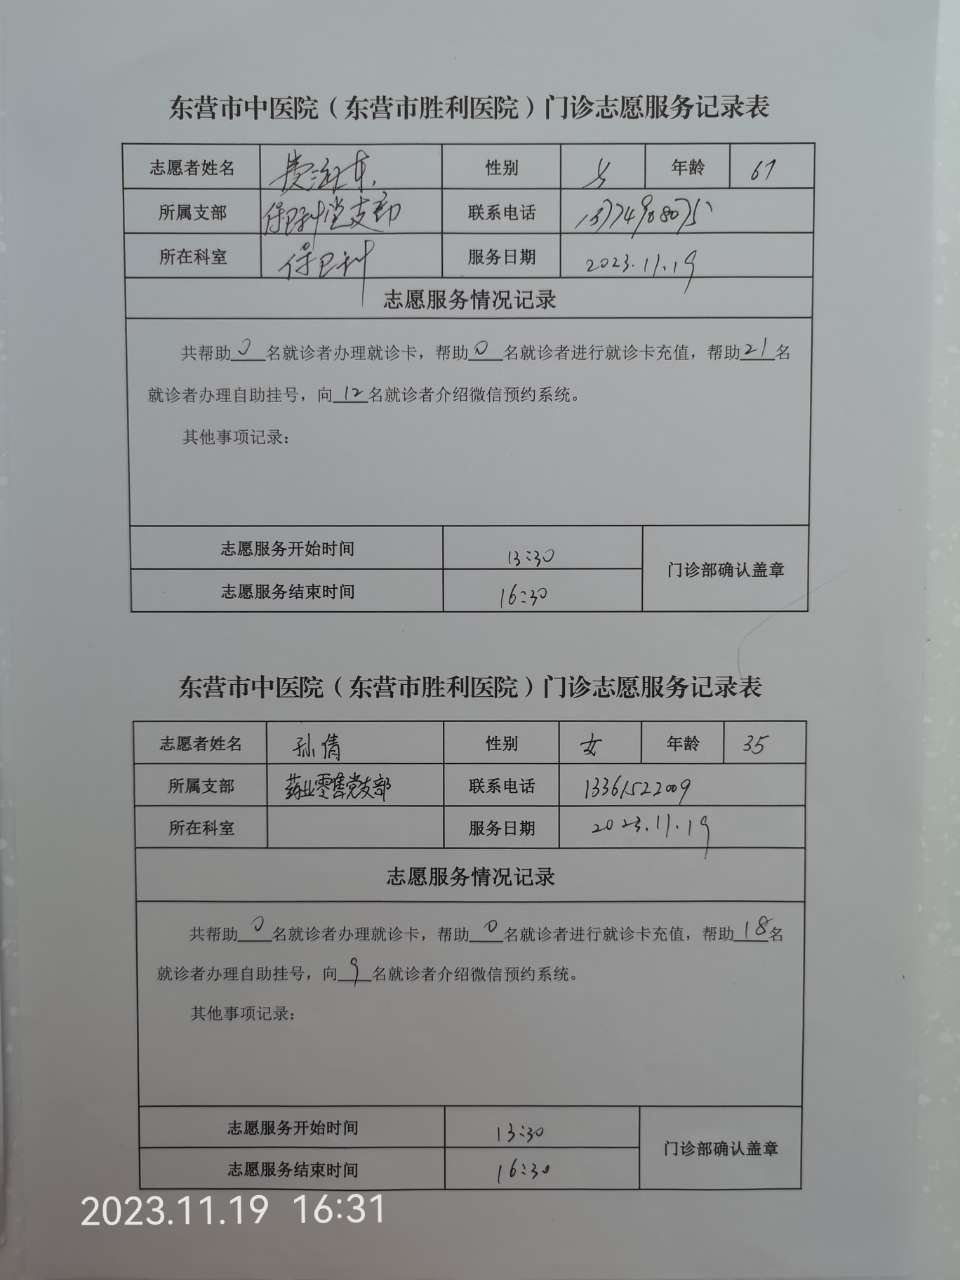 东营市中医院（东营市胜利医院）门诊志愿服务记录表
志愿者姓名 性别 女 年龄 67
所属支部 保卫科党支部 联系电话
所在科室 保卫科 服务日期 2023.11.19
志愿服务情况记录
共帮助0名就诊者办理就诊卡，帮助0名就诊者进行就诊卡充值，帮助21名
就诊者办理自助挂号，向12名就诊者介绍微信预约系统。
其他事项记录：
志愿服务开始时间 13:30
门诊部确认盖章
志愿服务结束时间 16:30
东营市中医院（东营市胜利医院）门诊志愿服务记录表
志愿者姓名 孙倩 性别 女 年龄 35
所属支部 药业零售党支部 联系电话 13361522009
所在科室 服务日期 2023.11.19
志愿服务情况记录
共帮助0名就诊者办理就诊卡，帮助0名就诊者进行就诊卡充值，帮助18名
就诊者办理自助挂号，向9名就诊者介绍微信预约系统。
其他事项记录：
志愿服务开始时间 13:30
门诊部确认盖章
志愿服务结束时间 16:30
2023.11.19 16:31